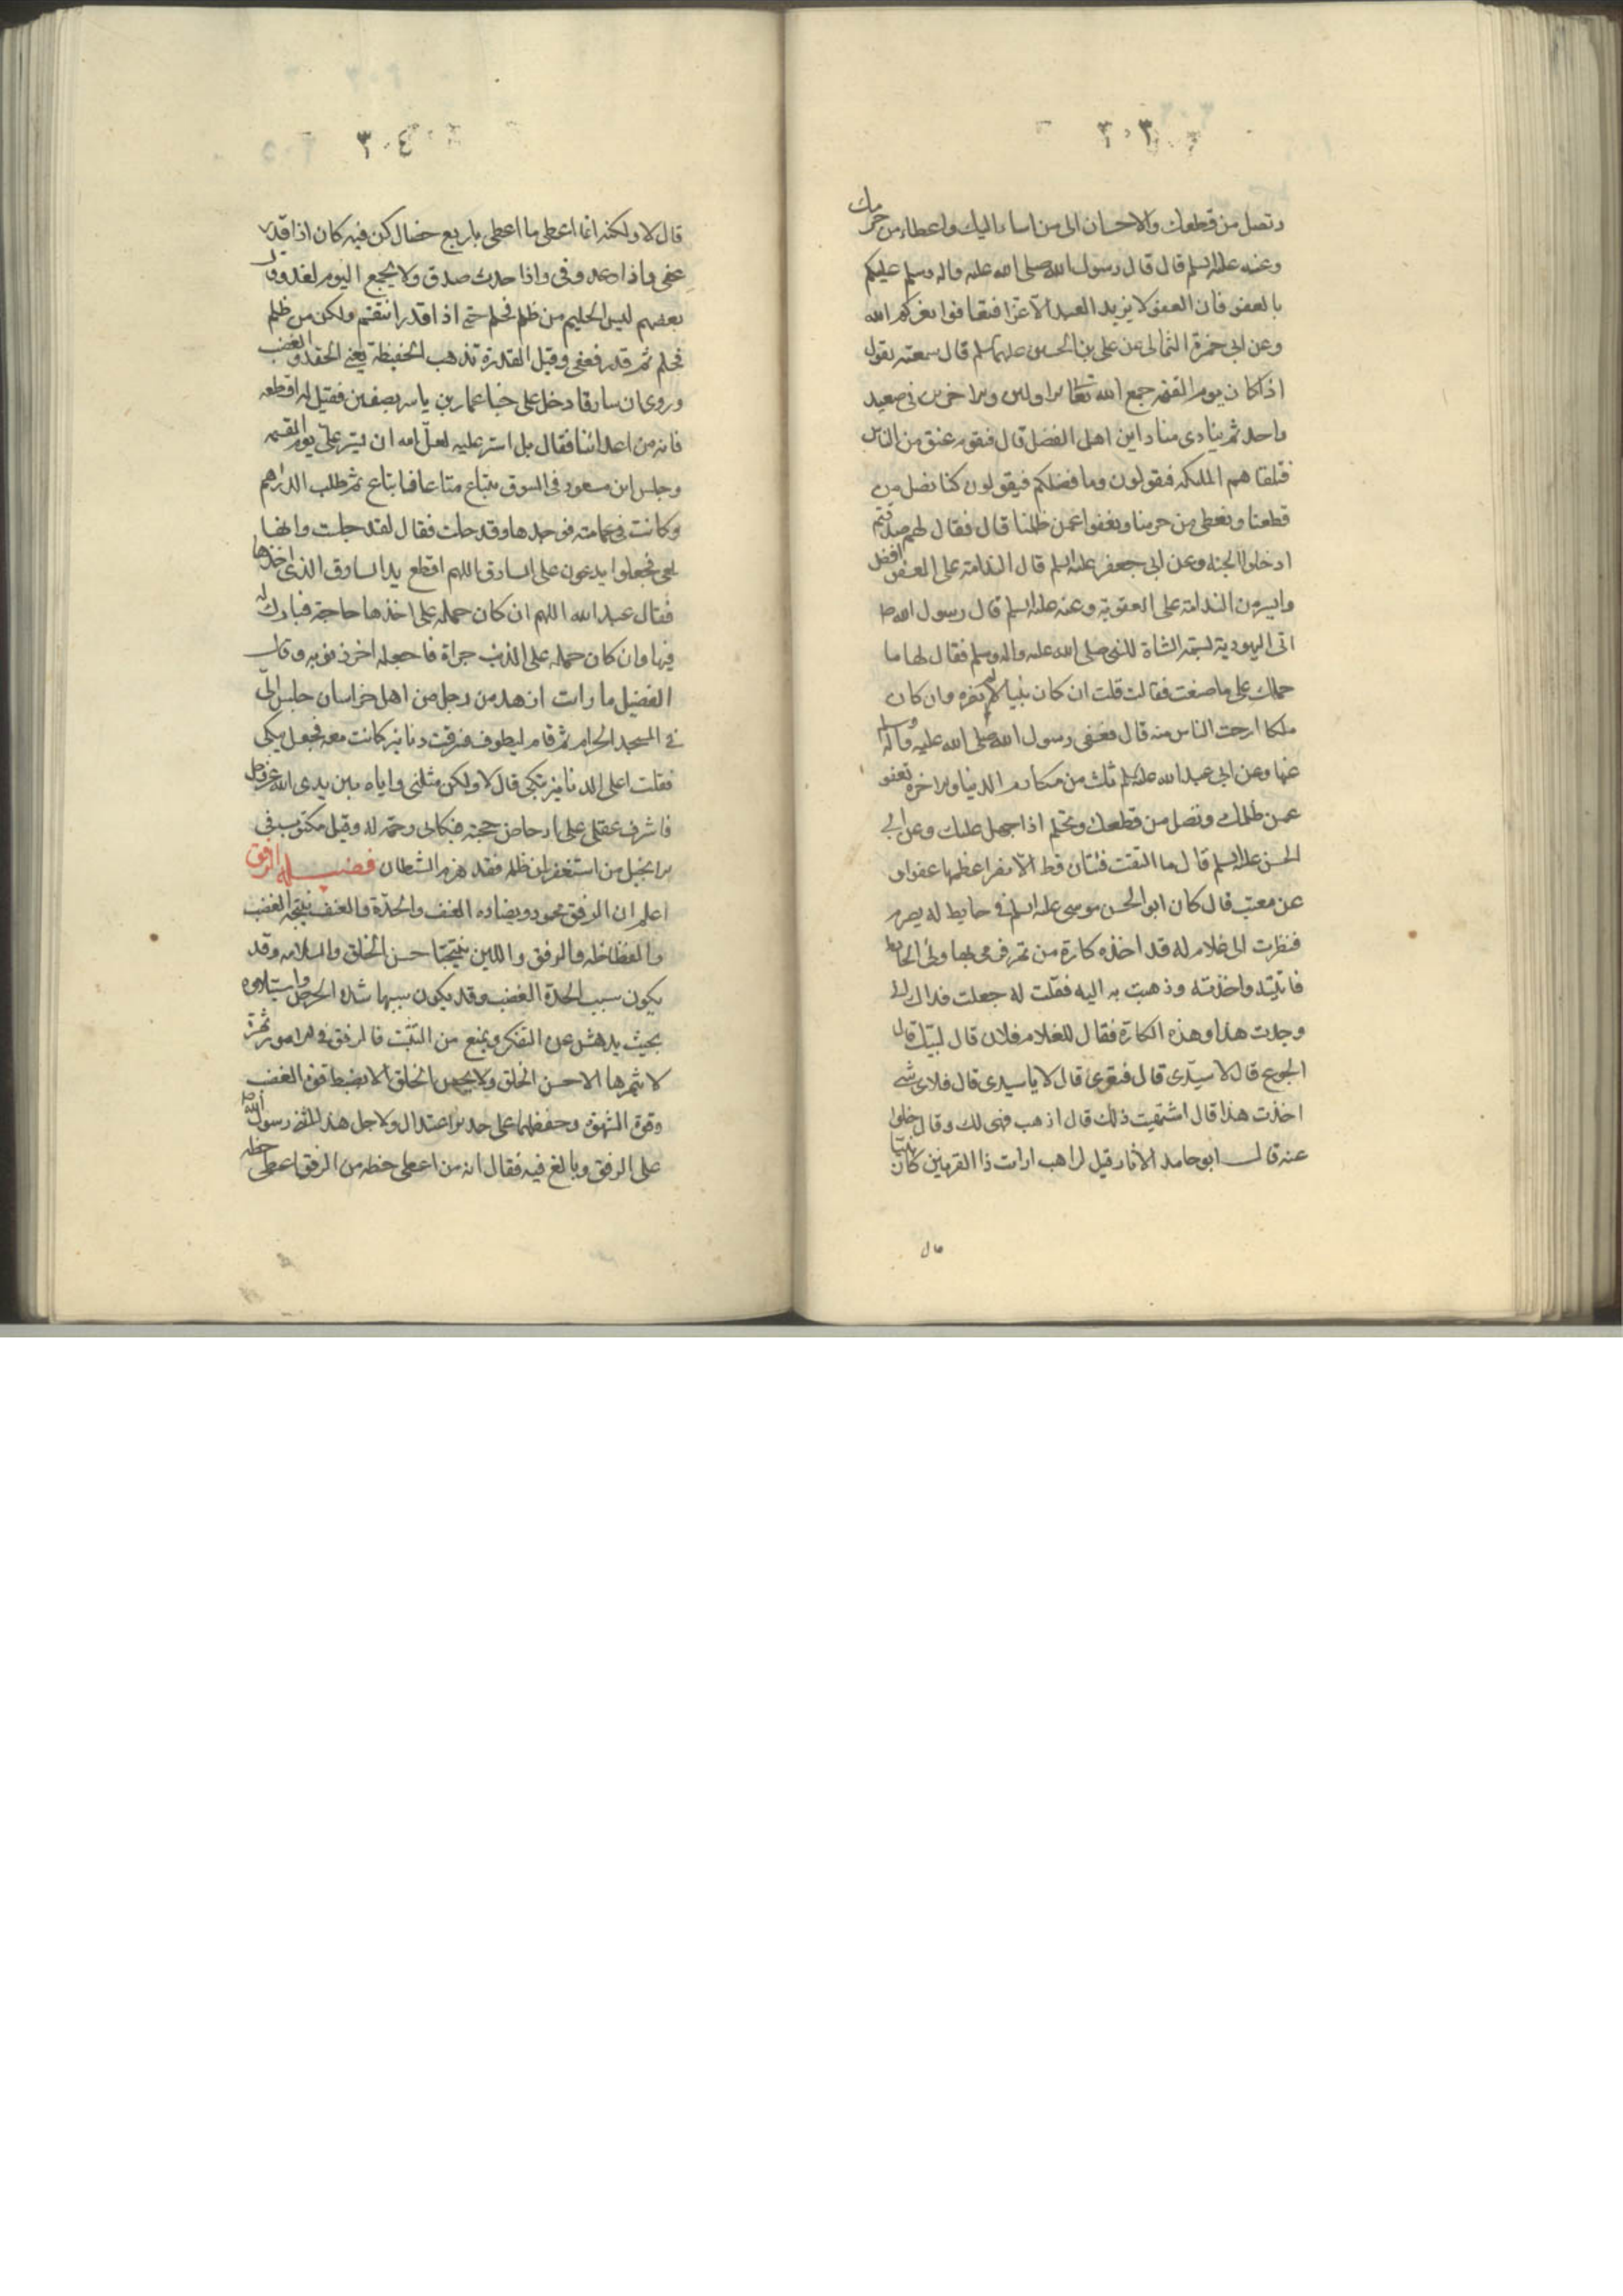 ٣٠٣
وتصل من قطعك والاحسان الى من اساء اليك واعطاء من حرمك
وعنه علیه السلم قال قال رسول الله صلى الله علیه واله وسلم عليكم
بالعفو فان العفو لا يزيد العبد الا عزا فتعافوا يعزكم الله
وعن ابى حمزة الثمالى عن على بن الحسين علیهما السلم قال سمعته يقول
اذا كان يوم القیمه جمع الله تعا الاولين والاخرين فى صعيد
واحد ثم ينادى مناد اين اهل الفضل قال فيقوم عنق من الناس
فتلقاهم الملئكه فيقولون وما فضلكم فيقولون كنا نصل من
قطعنا ونعطى من حرمنا ونعفوا عمن ظلمنا قال فقال لهم صدقتم
ادخلوا الجنة وعن ابى جعفر علیه السلم قال الندامة على العفو افضل
وايسر من الندامة على العقوبة وعنه علیه السلم قال رسول الله ص
اتى اليهودية لسمته الشاة للنبى صلى الله علیه واله وسلم فقال لها ما
حملك على ما صنعت فقالت قلت ان كان نبيا لم يضره وان كان
ملكا ارحت الناس منه قال فعفى رسول الله صلى الله عليه وآله وسلم
عنها وعن ابى عبد الله علیه السلم ثلث من مكارم الدنيا والاخرة تعفو
عمن ظلمك وتصل من قطعك وتحلم اذا جهل عليك وعن ابى
الحسن علیه السلم قال ما التقت فئتان قط الا نصر اعظمها عفوا و
عن معتب قال كان ابو الحسن موسى علیه السلم فى حايط له يصرم
فنظرت الى غلام له قد اخذه كارة من تمر فرمى بها وراء الحايط
فاتيته واخذته وذهبت به اليه فقلت له جعلت فداك انى
وجدت هذا وهذه الكارة فقال للغلام فلان قال لبيك قال
اتجوع قال لا سيدى قال فتعرى قال لا يا سيدى قال فلاى شى
اخذت هذا قال اشتهيت ذلك قال اذهب فهى لك وقال خلوا
عنه قال ابو حامد الاثار قيل لراهب ارايت ذا القرنين كان نبيّا
قال
٣٠٤
قال لا ولكنه انما اعطى ما اعطى باربع خصال كن فيه كان اذا قدر
عفى واذا وعد وفى واذا حدث صدق ولا يجمع اليوم لغد وقال
بعضهم ليس الحليم من ظلم فحلم حتى اذا قدر انتقم ولكن من ظلم
فحلم ثم قدر فعفى وقيل القدرة تذهب الحفيظة يعنى الحقد والغضب
وروى ان سارقا دخل على خبا عمار بن ياسر بصفين فقيل له اقطعه
فانه من اعدائنا فقال بل استر عليه لعل الله ان يستر على يوم القیمه
وجلس ابن مسعود فى السوق يبتاع متاعا فابتاع ثم طلب الدراهم
وكانت فى عمامته فوجدها وقد حلت فقال لقد جلست وانها
لمعى فجعلوا يدعون على السارق اللهم اقطع يد السارق الذى اخذها
فقال عبد الله اللهم ان كان حمله على اخذها حاجة فبارك له
فيها وان كان حمله على الذنب جراة فاجعله اخر ذنوبه وقال
الفضيل ما رايت ازهد من رجل من اهل خراسان جلس الىّ
فى المسجد الحرام ثم قام ليطوف فسرقت دنانير كانت معه فجعل يبكى
فقلت اعلى الدنانير تبكى قال لا ولكن مثلنى واياه بين يدى الله عز وجل
فاشرف عقلى على ادحاض حجته فبكائى رحمة له وقيل مكتوب فى
الانجيل من استغفر لمن ظلمه فقد هزم الشيطان فضيلة الرفق
اعلم ان الرفق محمود ويضاده العنف والحدّة والعنف نتيجه الغضب
والفظاظة والرفق واللين نتيجتا حسن الخلق والسلامه وقد
يكون سبب الحدة الغضب وقد يكون سببها شدة الحرص واستيلاؤه
بحيث يدهش عن التفكر ويمنع من التثبت فالرفق فى الامور ثمرة
لا يثمرها الا حسن الخلق ولا يحسن الخلق الا بضبط قوة الغضب
وقوة الشهوة وحفظهما على حد الاعتدال ولاجل هذا اثنى رسول الله ص
على الرفق وبالغ فيه فقال انه من اعطى حظه من الرفق اعطى حظه